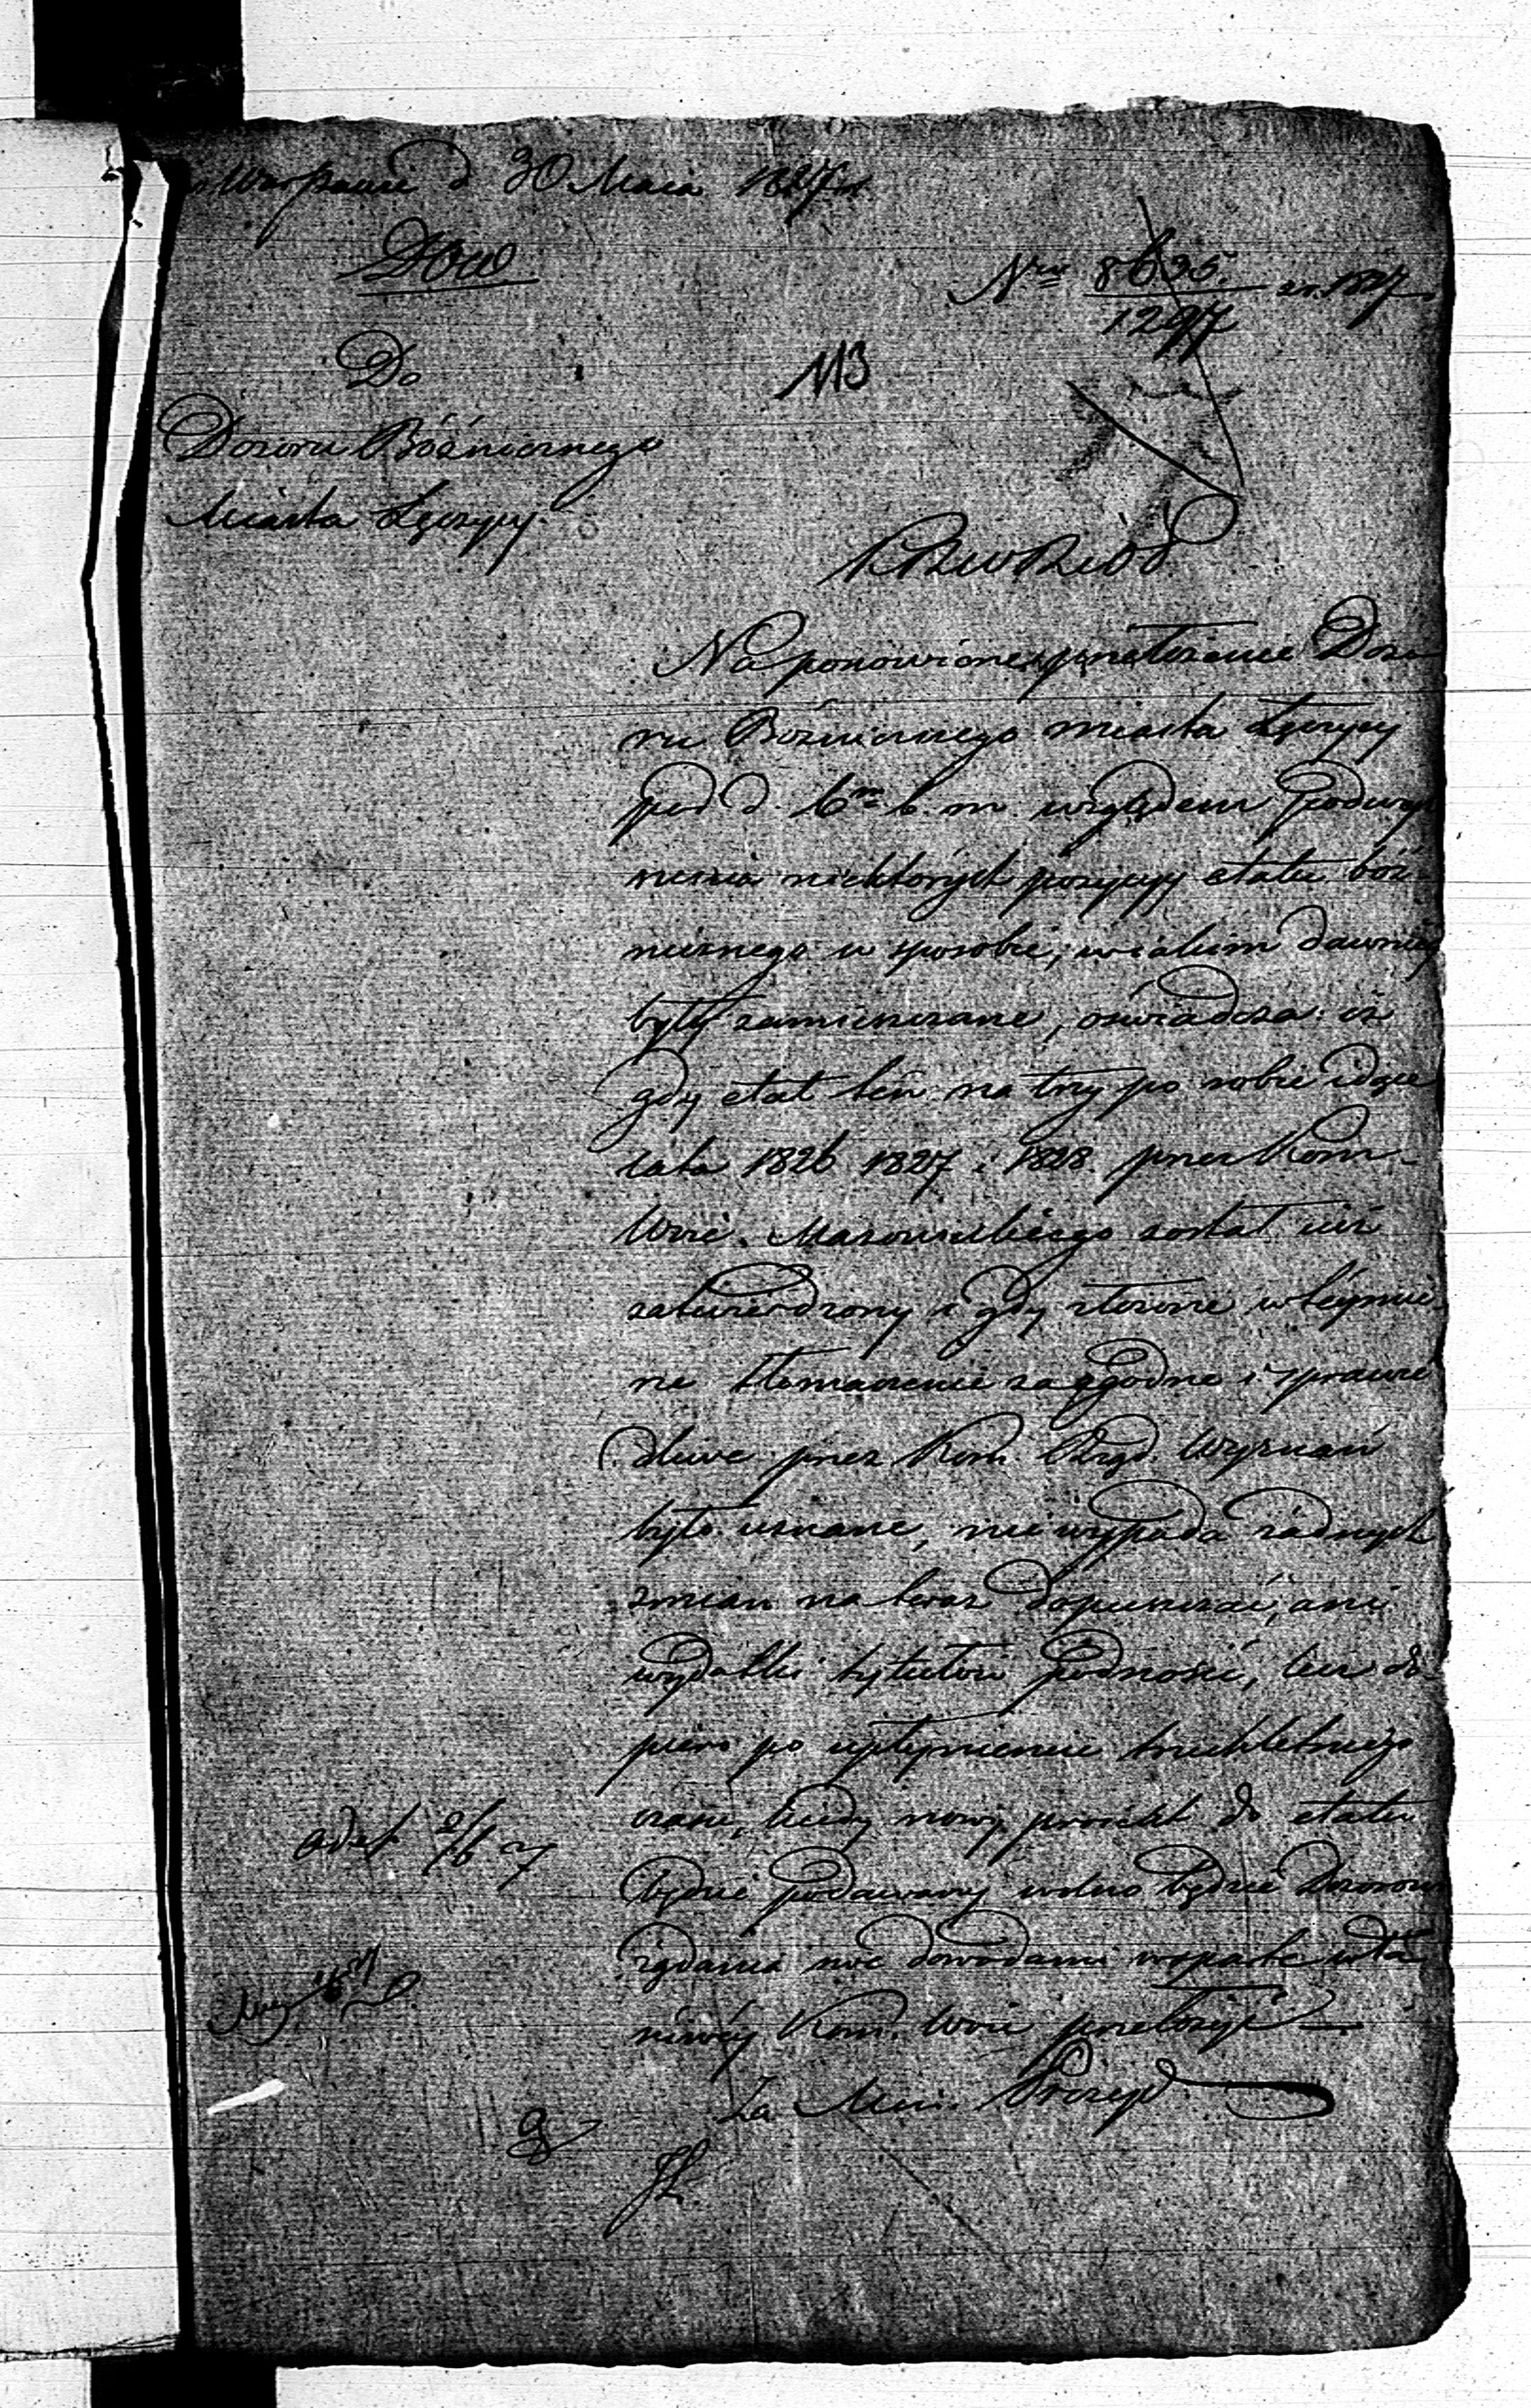 w Warszawie d 30 Maia 1827 r.
Nro 8695. 1827
1297
Do
113
Dozoru Bóźnicznego
Miasta Łęczycy.
KRzWRiOP.
Na ponowione przełożenie Dozo
ru Bóźnicznego miasta Łęczycy
pod d. 6m b. m. względem podwyż
szenia niektórych pozycyy etatu bóź-
nicznego w sposobie, w iakim dawniéy
były zamieszczane, oświadcza: iż
gdy etat ten na trzy po sobie idące
lata 1826 1827 i 1828. przez Kom-
Woie. Mazowieckiego został iuż
zatwierdzony i gdy złożone w téymie-
rze tłomaczenie za zgodne i sprawie
dliwe przez Kom. Rząd. Wyznań
było uznane, nie wypada żadnych
zmian na teraz dopuszczać, ani
wydatki tytułów podnosić, lecz do
piero po upłynieniu trzechletniego
czasu, kiedy nowy proiekt do etatu
będzie podawany wolno będzie Dozorowi
żądania swe dowodami wsparte wła
ściwéy Kom. Woie przełożyć
Za Min. Prezyd.